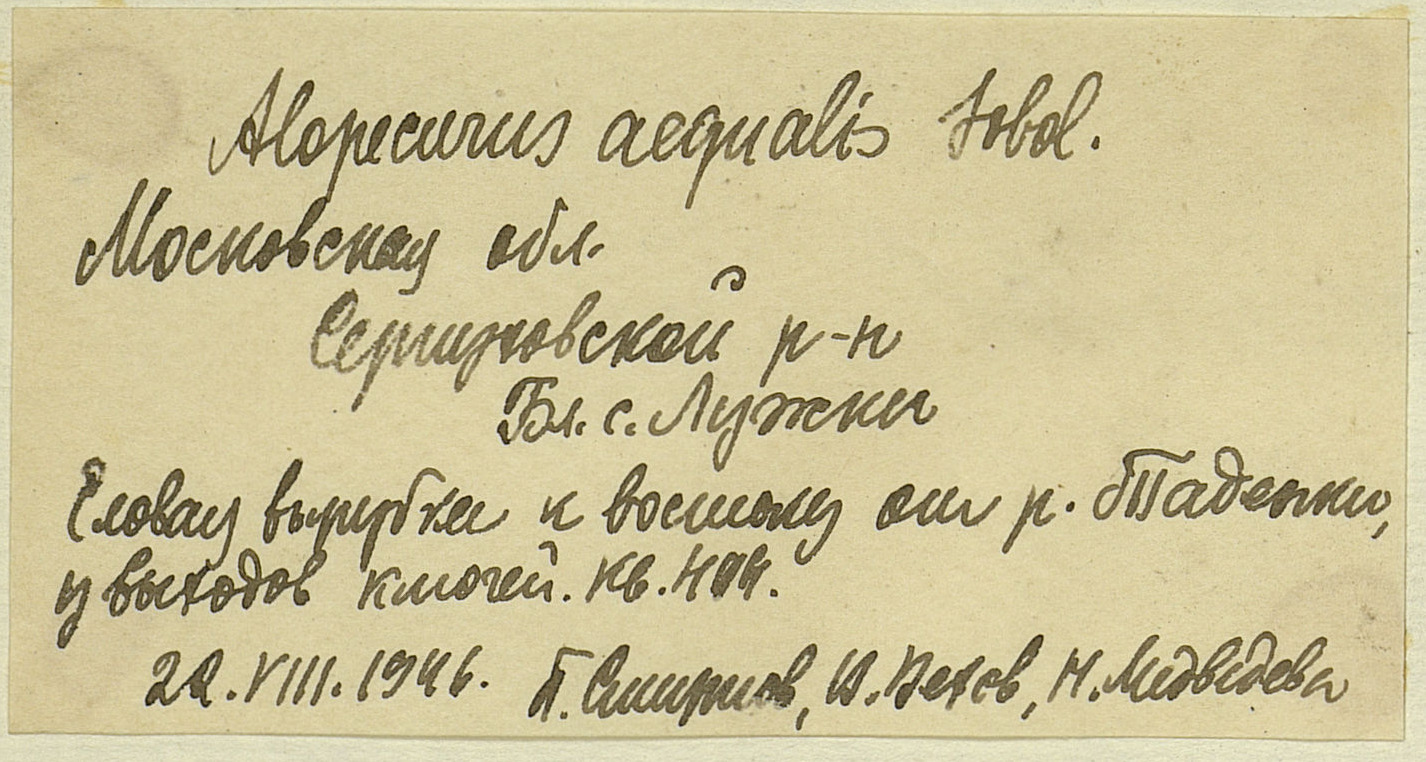 Alopecurus aequalis Sobol.
Московская обл.
Серпуховской р-н
Бл. с. Лужки
Еловая вырубка к востоку от р. Таденки,
у выходов ключей. Кв. 404.
22.VIII.1946. П. Смирнов, В. Вехов, Н. Медведева